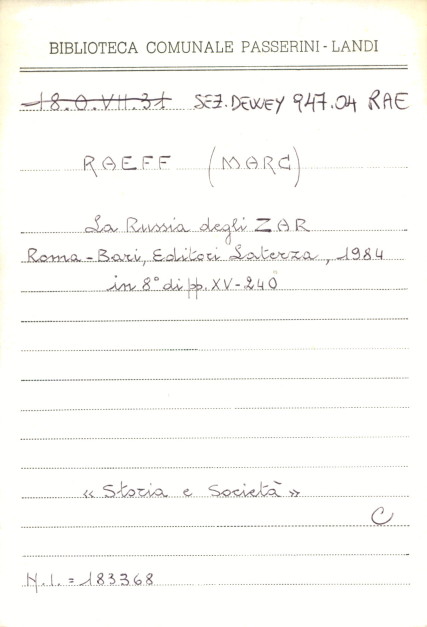 BIBLIOTECA COMUNALE PASSERINI-LANDI
18.O.VII.31 SEZ. DEWEY 947.04 RAE
RAEFF (MARC)
La Russia degli ZAR
Roma-Bari, Editori Laterza, 1984
in 8° di pp. XV-240
« Storia e Società »
C
N.I. = 183368